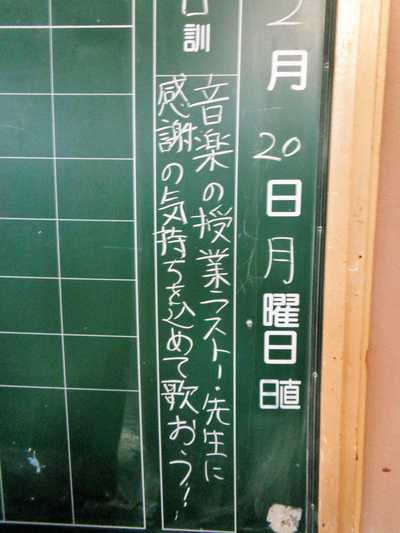 2月20日月曜日
日直
日訓
音楽の授業ラスト!・先生に
感謝の気持ちを込めて歌おう!